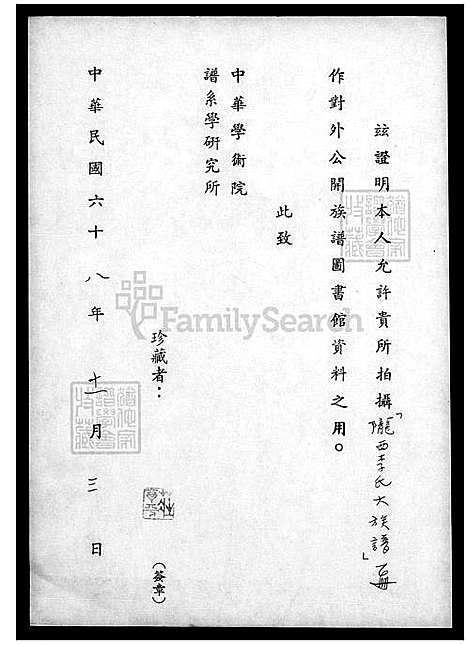 茲證明本人允許貴所拍攝「隴西李氏大族譜」一冊
作對外公開族譜圖書館資料之用。
此致
中華學術院
譜系學研究所
珍藏者：
(簽章)
中華民國六十八年十一月三日
FamilySearch